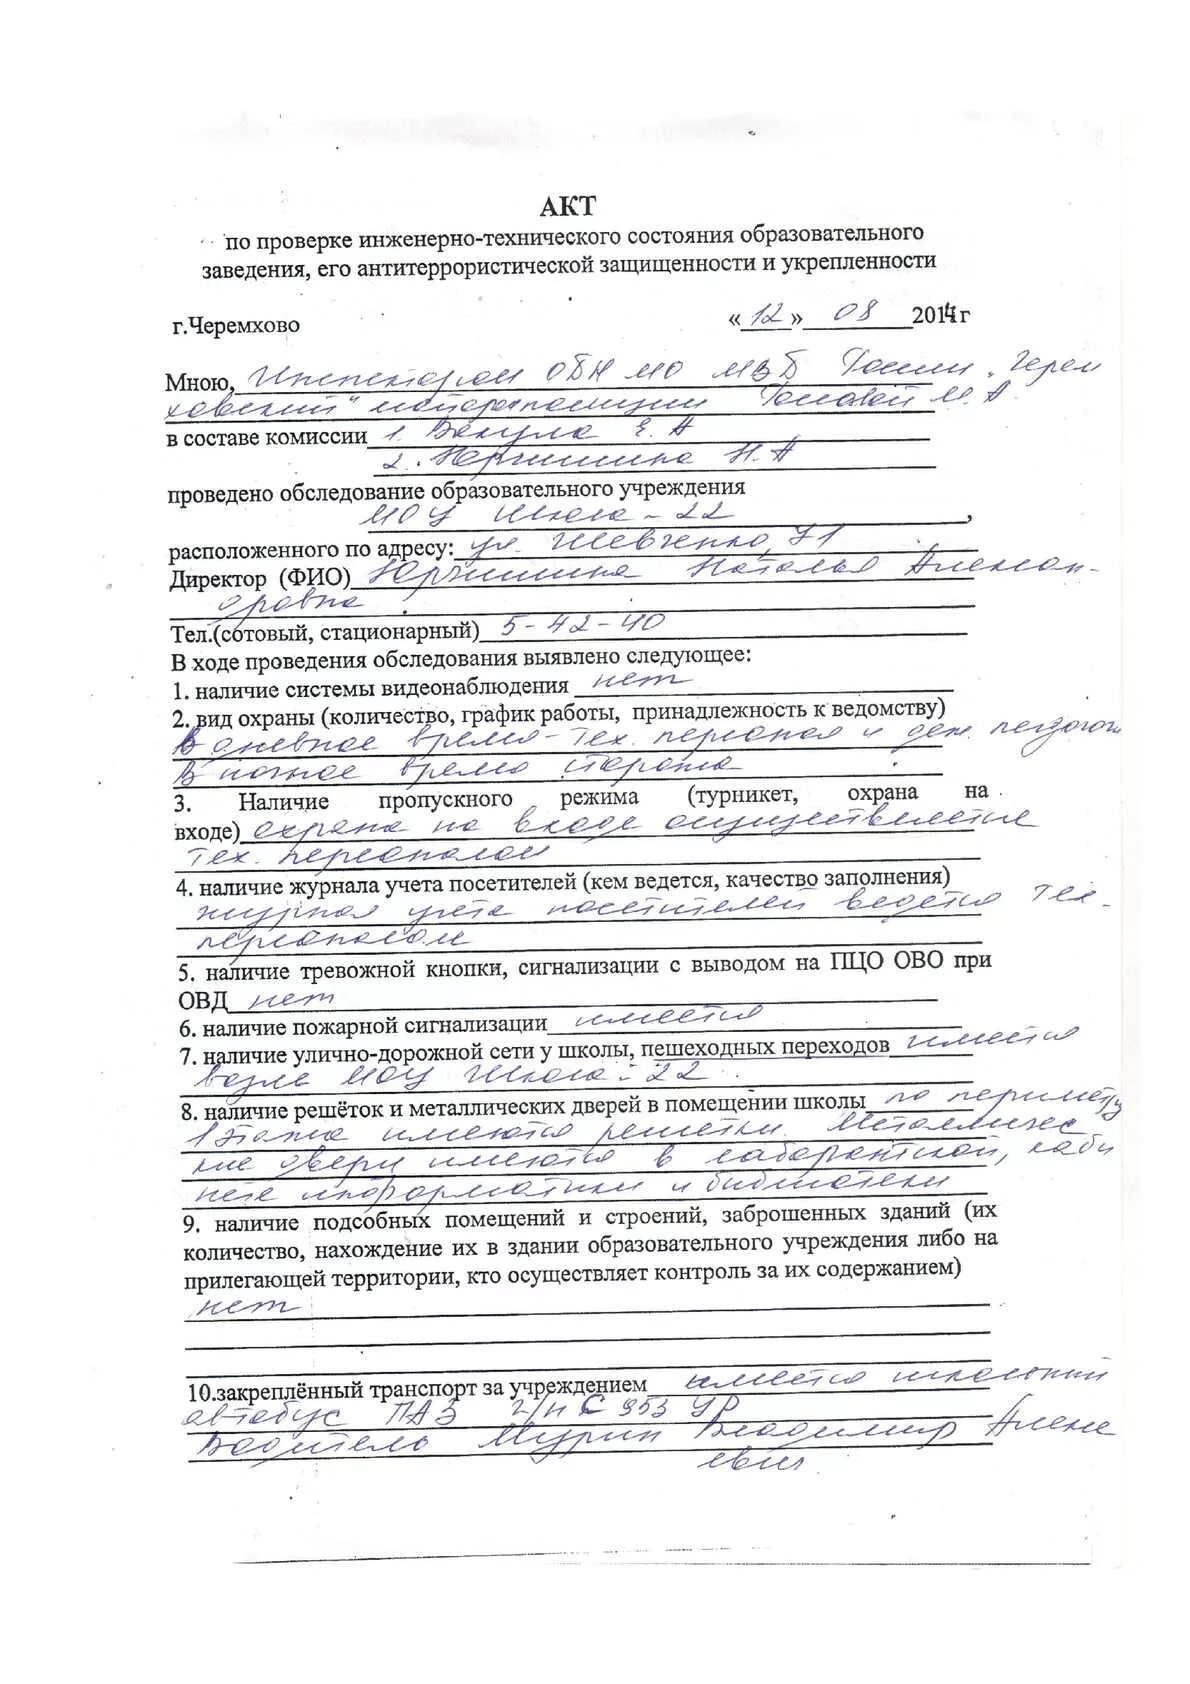 АКТ
по проверке инженерно-технического состояния образовательного
заведения, его антитеррористической защищенности и укрепленности
г.Черемхово «12» 08 2014г
Мною, Инспектором МО МВД России „Черем
ховский"
в составе комиссии 1. Вакула Е. А
2. Н. А
проведено обследование образовательного учреждения
МОУ Школа - 22,
расположенного по адресу: ул. Шевченко, 71
Директор (ФИО) Наталья Алексан-
дровна
Тел.(сотовый, стационарный) 5-42-40
В ходе проведения обследования выявлено следующее:
1. наличие системы видеонаблюдения нет
2. вид охраны (количество, график работы, принадлежность к ведомству)
В дневное время - тех. персонал и деж. педагоги
В ночное время сторожа
3. Наличие пропускного режима (турникет, охрана на
входе) охрана на входе осуществляется
тех. персоналом
4. наличие журнала учета посетителей (кем ведется, качество заполнения)
журнал учета посетителей ведется тех.
персоналом
5. наличие тревожной кнопки, сигнализации с выводом на ПЦО ОВО при
ОВД нет
6. наличие пожарной сигнализации имеется
7. наличие улично-дорожной сети у школы, пешеходных переходов имеется
возле МОУ Школа - 22
8. наличие решёток и металлических дверей в помещении школы по периметру
1 этажа имеются решетки. Металличес
кие двери имеются в лаборантской, каби
нете информатики и библиотеки
9. наличие подсобных помещений и строений, заброшенных зданий (их
количество, нахождение их в здании образовательного учреждения либо на
прилегающей территории, кто осуществляет контроль за их содержанием)
нет
10.закреплённый транспорт за учреждением имеется школьный
автобус ПАЗ г/н С 953 УР
Водитель Мурин Владимир Алексе
евич